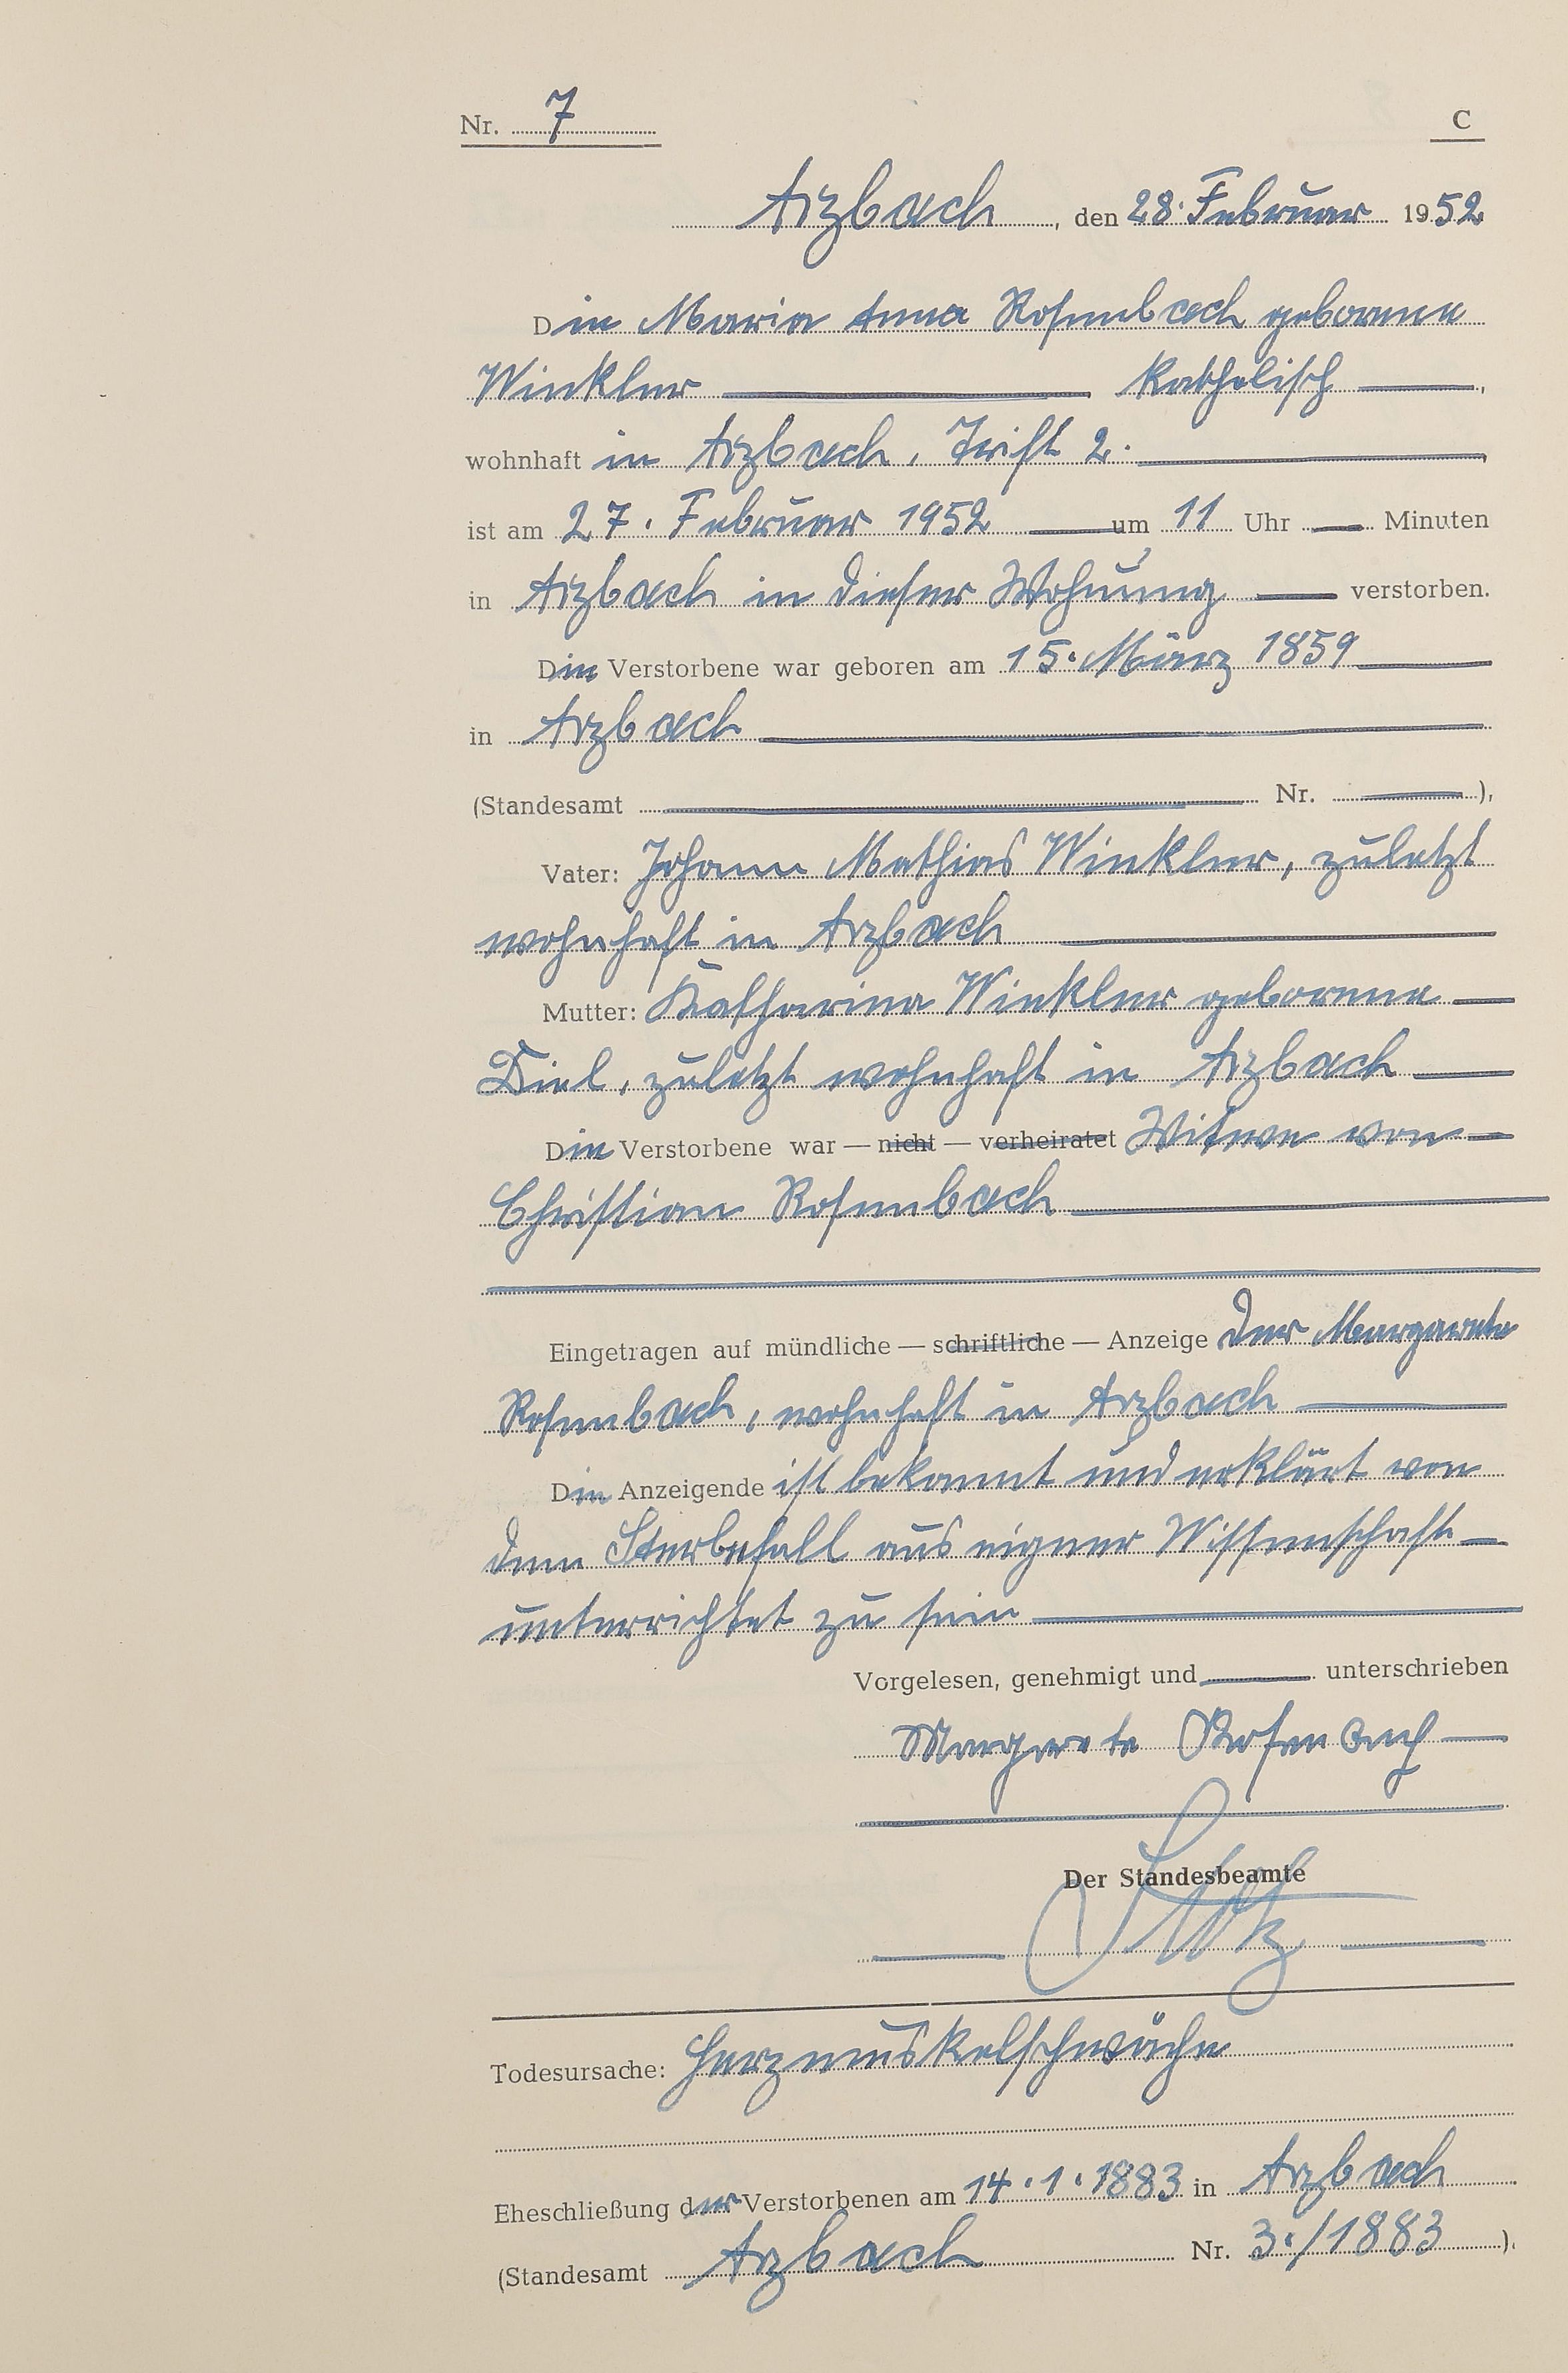 Nr. 7 C
Arzbach, den 28. Februar 1952
Die Maria Anna Rosenbach geborene
Winkler katholisch,
wohnhaft in Arzbach, Trift 2.
ist am 27. Februar 1952 um 11 Uhr — Minuten
in Arzbach in dieser Wohnung verstorben.
Die Verstorbene war geboren am 15. März 1859
in Arzbach
(Standesamt — Nr. —),
Vater: Johann Mathias Winkler, zuletzt
wohnhaft in Arzbach
Mutter: Katharina Winkler geborene
Diel, zuletzt wohnhaft in Arzbach
Die Verstorbene war — nicht — verheiratet Witwe von
Christian Rosenbach
Eingetragen auf mündliche — schriftliche — Anzeige der Margarete
Rosenbach, wohnhaft in Arzbach
Die Anzeigende ist bekannt und erklärt von
dem Sterbefall aus eigner Wissenschaft
unterrichtet zu sein
Vorgelesen, genehmigt und — unterschrieben
Margarete Rosenbach
Der Standesbeamte
Todesursache: Herzmuskelschwäche
Eheschließung der Verstorbenen am 14.1.1883 in Arzbach
(Standesamt Arzbach Nr. 3./1883).